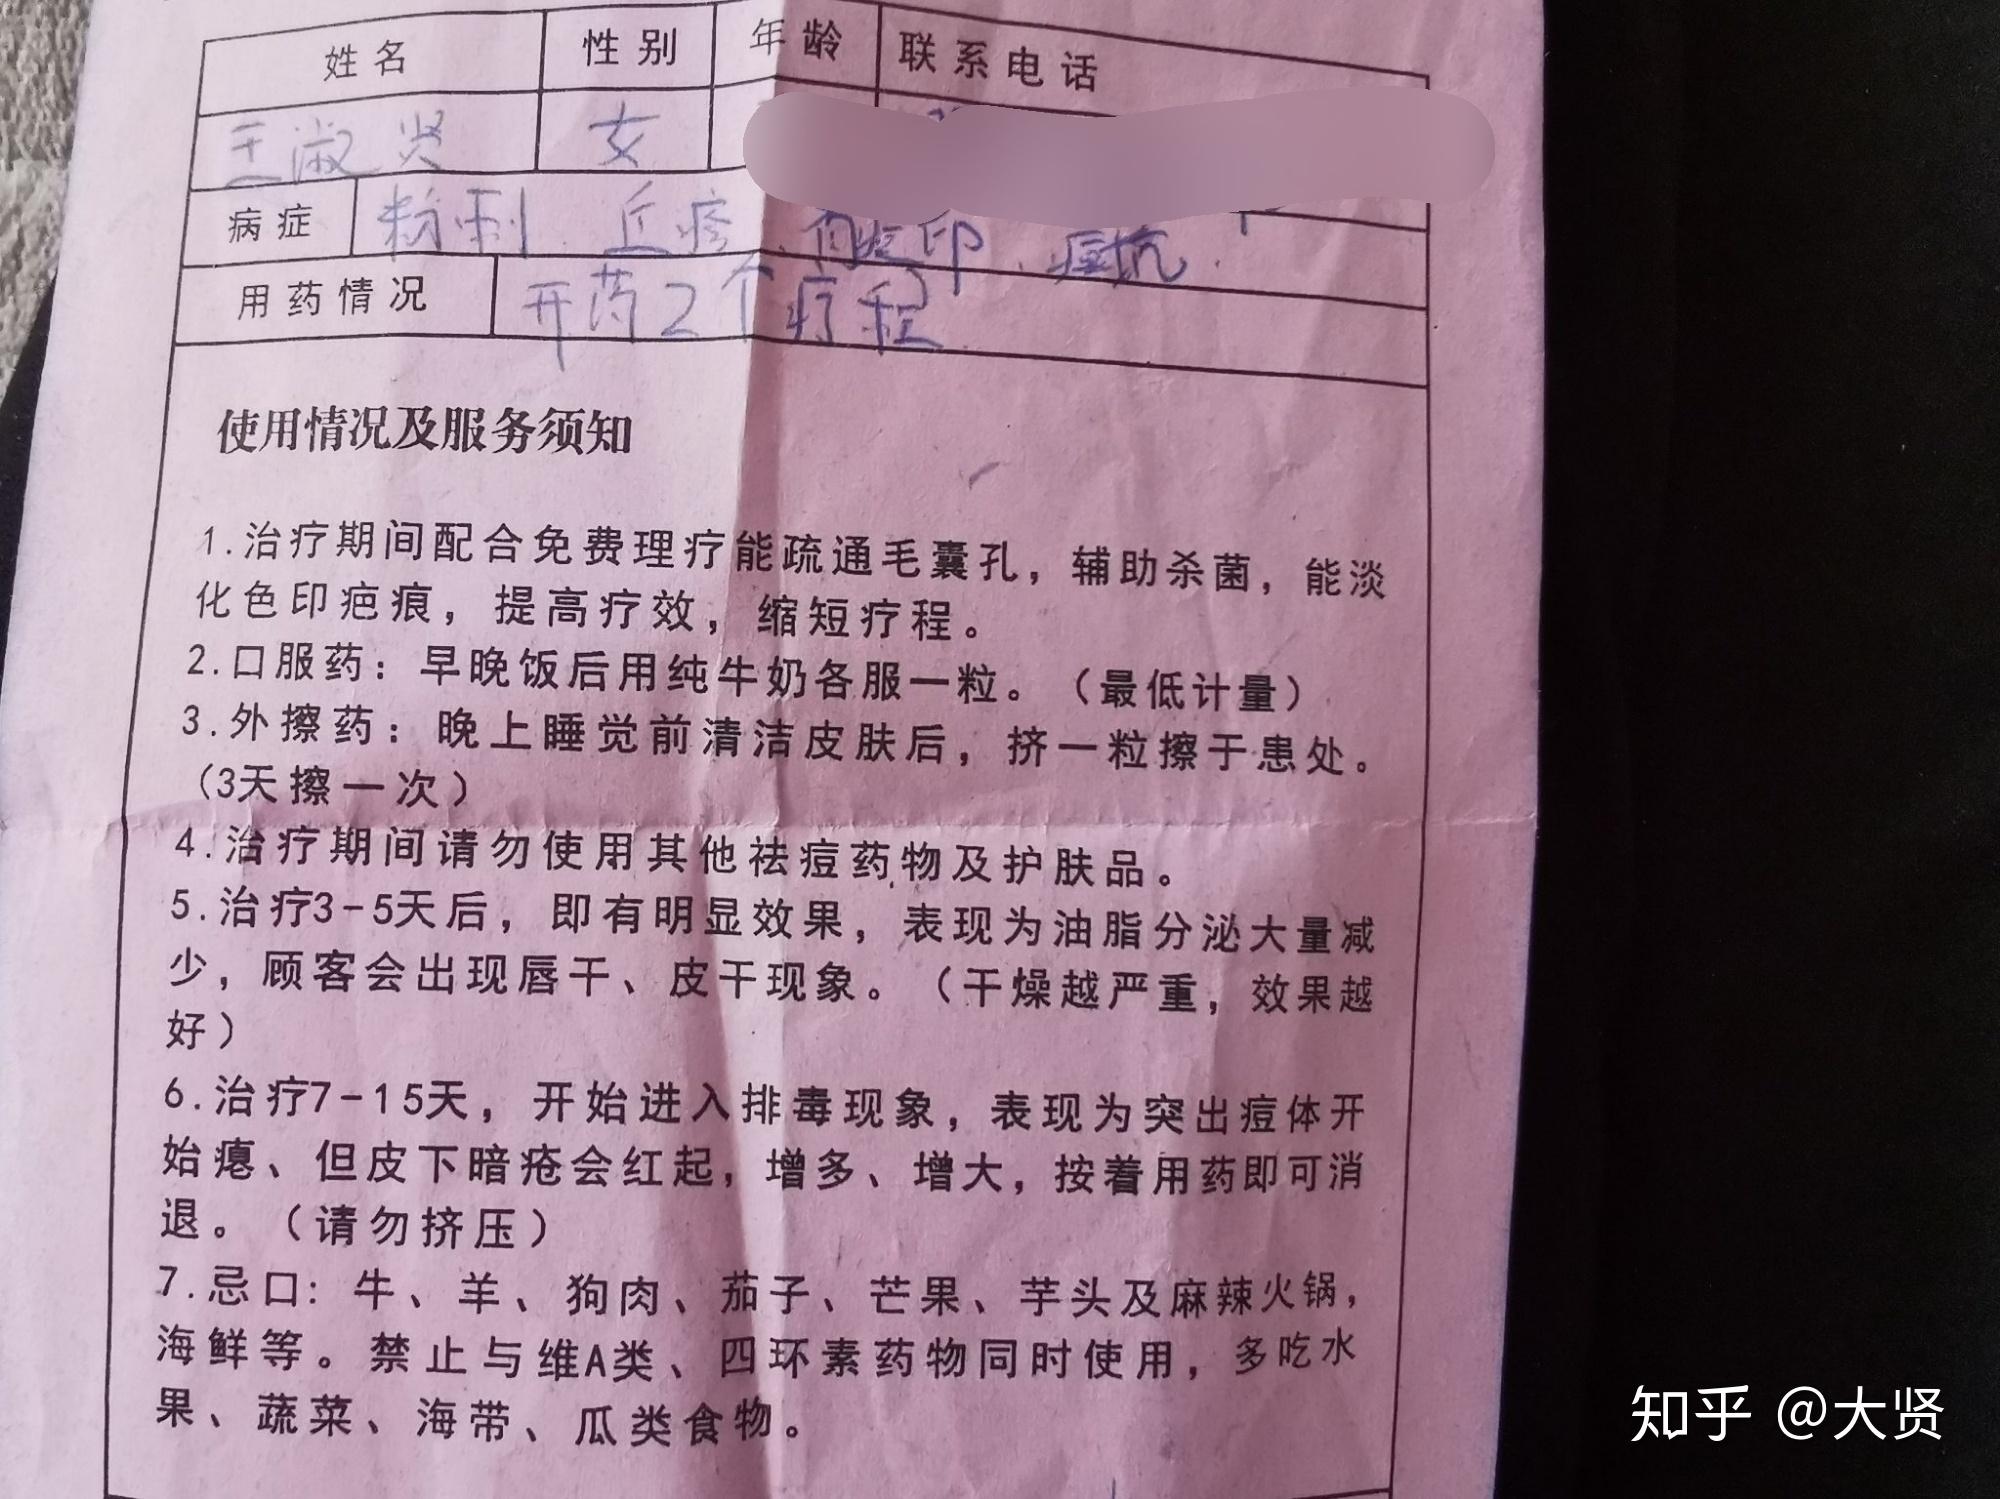 姓名 性别 年龄 联系电话
王淑贤 女
病症 粉刺 丘疹 痘印 痘坑
用药情况 开药2个疗程
使用情况及服务须知
1.治疗期间配合免费理疗能疏通毛囊孔，辅助杀菌，能淡
化色印疤痕，提高疗效，缩短疗程。
2.口服药：早晚饭后用纯牛奶各服一粒。（最低计量）
3.外擦药：晚上睡觉前清洁皮肤后，挤一粒擦于患处。
（3天擦一次）
4.治疗期间请勿使用其他祛痘药物及护肤品。
5.治疗3-5天后，即有明显效果，表现为油脂分泌大量减
少，顾客会出现唇干、皮干现象。（干燥越严重，效果越
好）
6.治疗7-15天，开始进入排毒现象，表现为突出痘体开
始瘪、但皮下暗疮会红起，增多、增大，按着用药即可消
退。（请勿挤压）
7.忌口：牛、羊、狗肉、茄子、芒果、芋头及麻辣火锅，
海鲜等。禁止与维A类、四环素药物同时使用，多吃水
果、蔬菜、海带、瓜类食物。
知乎 @大贤